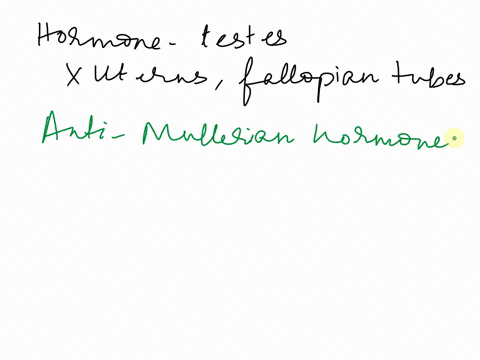 Hormone - testes
X Uterus, fallopian tubes
Anti-Mullerian hormone.